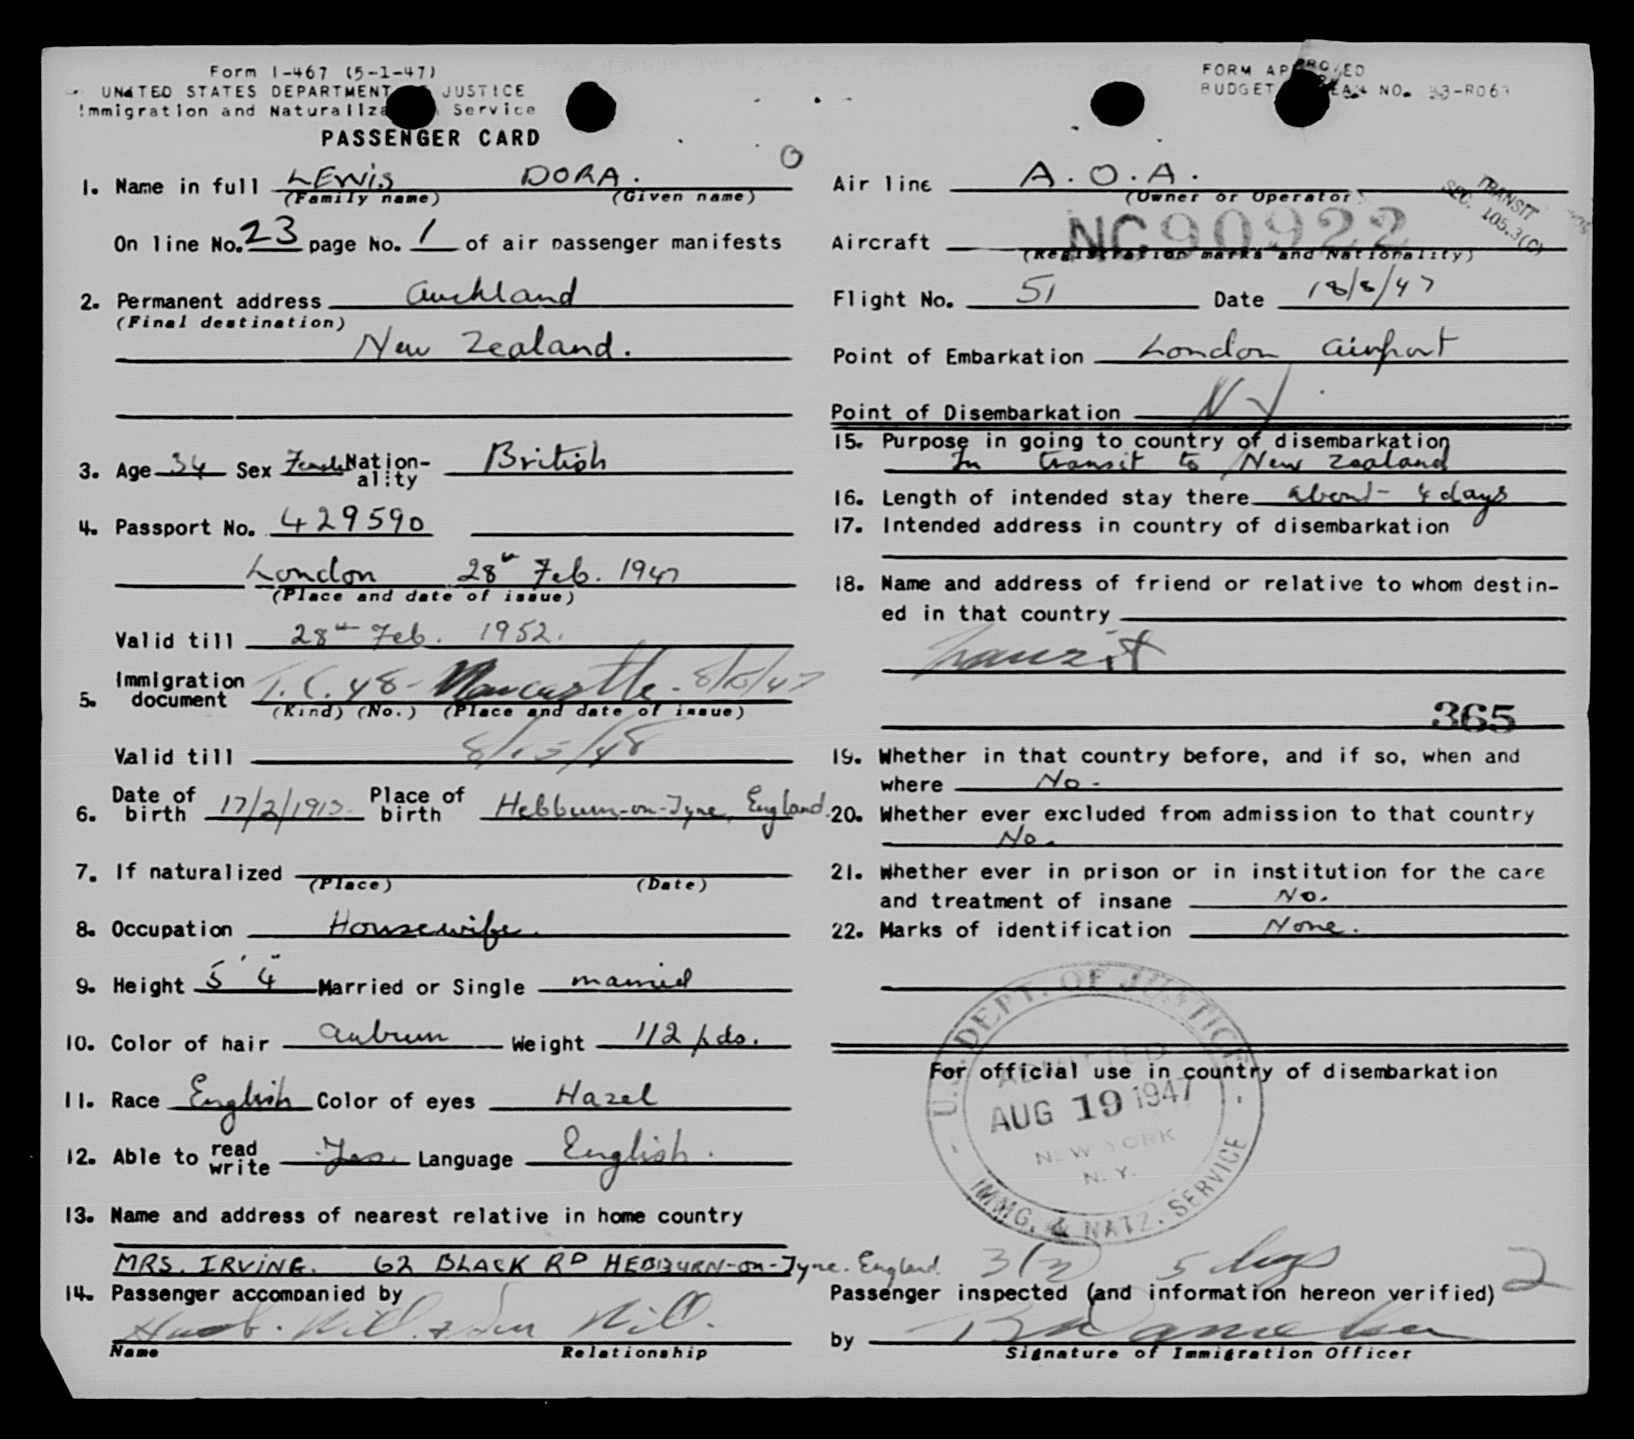 Form I-467 (5-1-47)
UNITED STATES DEPARTMENT JUSTICE
Immigration and Service
PASSENGER CARD
FORM APPROVED
BUDGET NO.
1. Name in full LEWIS DORA.
(Family name) (Given name)
On line No. 23 page No. 1 of air passenger manifests
2. Permanent address Auckland
(Final destination)
New Zealand.
3. Age 34 Sex Female Nation-
ality British
4. Passport No. 429590
London 28th Feb. 1947
(Place and date of issue)
Valid till 28th Feb. 1952.
5. Immigration
document T.C. 48 - Newcastle - 8/15/47
(Kind) (No.) (Place and date of issue)
Valid till 8/15/48
6. Date of
birth 17/2/1913 Place of
birth Hebburn-on-Tyne, England.
7. If naturalized
(Place) (Date)
8. Occupation Housewife.
9. Height 5' 4" Married or Single married
10. Color of hair auburn Weight 112 pds.
11. Race English Color of eyes Hazel
12. Able to read
write Yes. Language English.
13. Name and address of nearest relative in home country
MRS. IRVING. 62 BLACK RD HEBBURN-on-Tyne. England.
14. Passenger accompanied by
Husb. Will. & Son Will.
Name Relationship
Air line A.O.A.
(Owner or Operator)
TRANSIT
SEC. 105.3(C)
Aircraft NC90922
(Registration marks and Nationality)
Flight No. 51 Date 18/8/47
Point of Embarkation London airport
Point of Disembarkation NY
15. Purpose in going to country of disembarkation
In transit to New Zealand
16. Length of intended stay there about - 4 days
17. Intended address in country of disembarkation
18. Name and address of friend or relative to whom destin-
ed in that country
Transit
365
19. Whether in that country before, and if so, when and
where No -
20. Whether ever excluded from admission to that country
No.
21. Whether ever in prison or in institution for the care
and treatment of insane No.
22. Marks of identification None.
For official use in country of disembarkation
U.S. DEPT. OF JUSTICE
ADMITTED
AUG 19 1947
NEW YORK
N.Y.
IMMG. & NATZ. SERVICE
5 days 2
Passenger inspected (and information hereon verified)
by
Signature of Immigration Officer